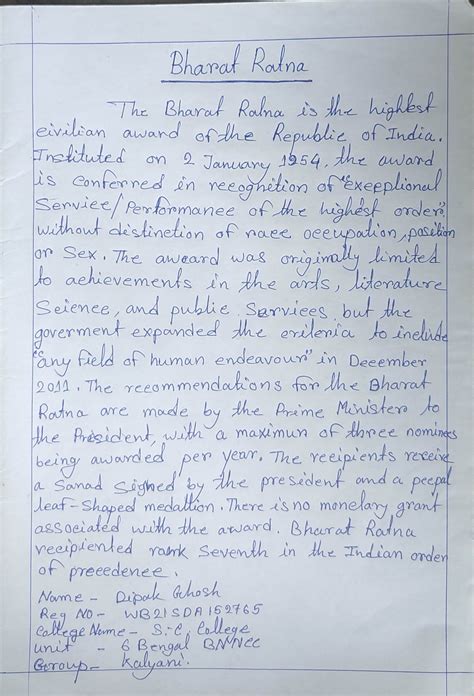 Bharat Ratna
The Bharat Ratna is the highest
civilian award of the Republic of India.
Instituted on 2 January 1954, the award
is conferred in recognition of "exceptional
Service/Performance of the highest order",
without distinction of race occupation, position
or Sex. The award was originally limited
to achievements in the arts, literature
Science, and public Services, but the
goverment expanded the criteria to include
"any field of human endeavour" in December
2011. The recommendations for the Bharat
Ratna are made by the Prime Minister to
the President, with a maximun of three nominees
being awarded per year. The recipients receive
a Sanad signed by the president and a peepal
leaf-shaped medallion. There is no monetary grant
associated with the award. Bharat Ratna
recipiented rank Seventh in the Indian order
of precedence.
Name - Dipak Ghosh
Reg NO- WB21SDA152765
College Name - S.C. College
unit - 6 Bengal BN NCC
Goroup- Kalyani.